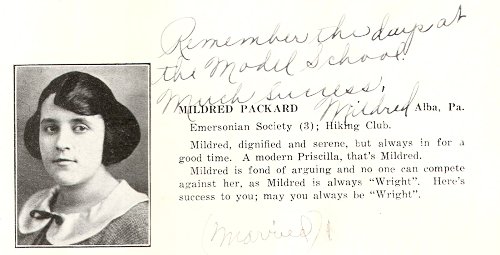 Remember the days at
the Model School.
Much success,
Mildred
MILDRED PACKARD Alba, Pa.
Emersonian Society (3); Hiking Club.
Mildred, dignified and serene, but always in for a
good time. A modern Priscilla, that's Mildred.
Mildred is fond of arguing and no one can compete
against her, as Mildred is always "Wright". Here's
success to you; may you always be "Wright".
(Married)